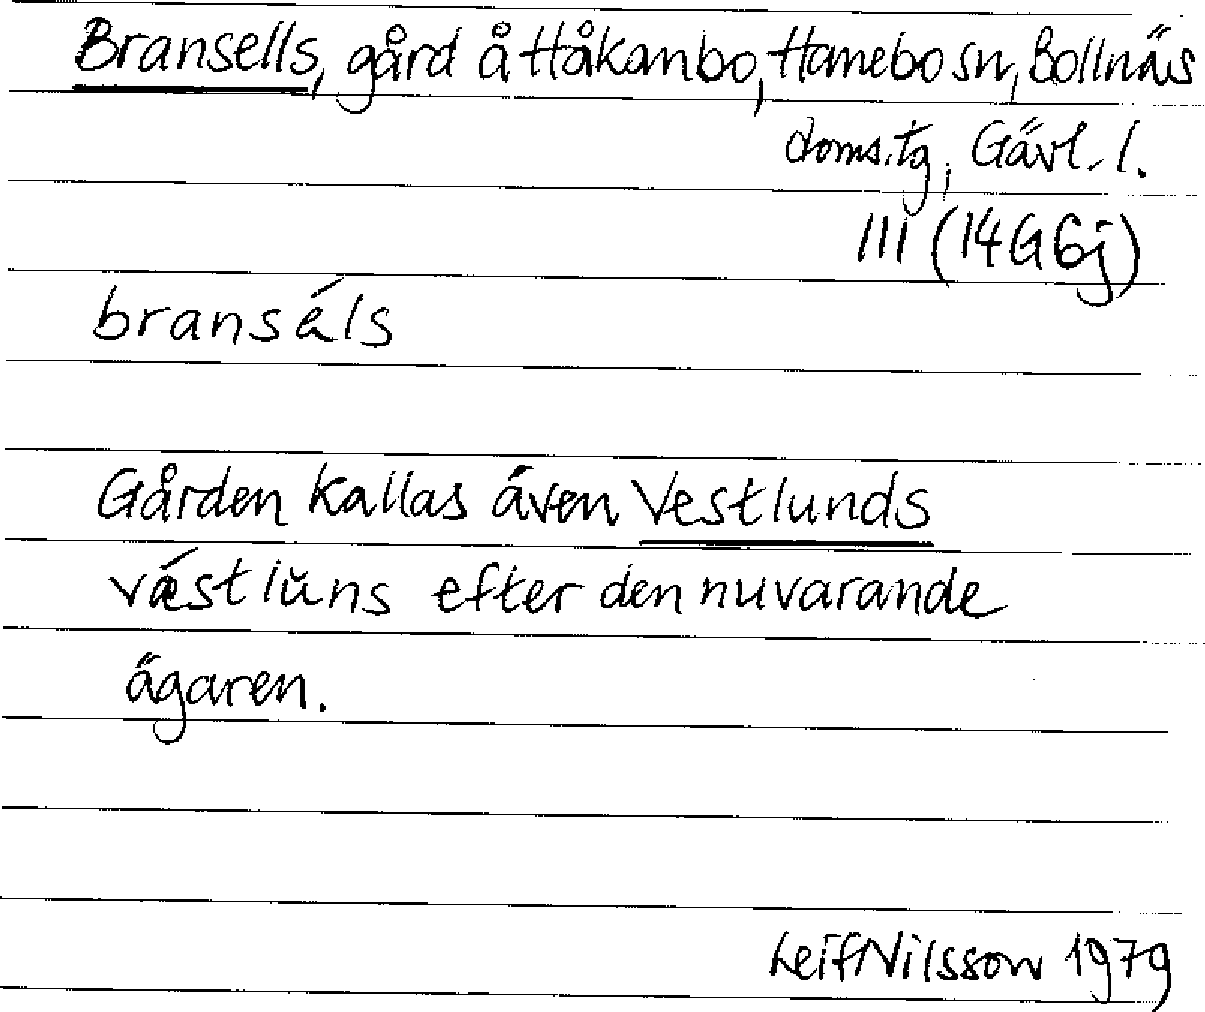 Bransells, gård å Håkanbo, Hanebo sn, Bollnäs
doms.tg, Gävl. l.
III (14G6j)
bransä́ls
Gården kallas även Vestlunds
vǽstlŭns efter den nuvarande
ägaren.
Leif Nilsson 1979